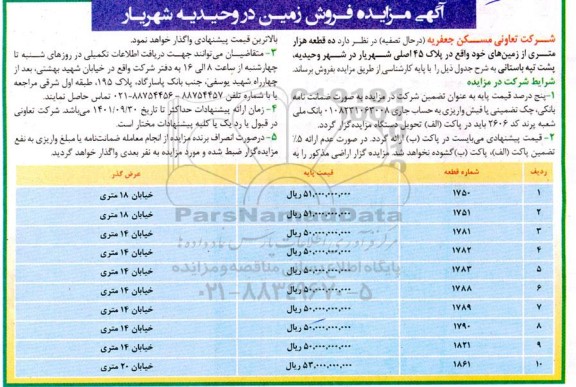 آگهی مزایده فروش زمین در وحیدیه شهریار
شرکت تعاونی مسکن جعفریه (درحال تصفیه) در نظر دارد ده قطعه هزار
متری از زمین‌های خود واقع در پلاک ۴۵ اصلی شهریار در شهر وحیدیه،
پشت تپه باستانی به شرح جدول ذیل را با پایه کارشناسی از طریق مزایده بفروش برساند.
شرایط شرکت در مزایده
۱-پنج درصد قیمت پایه به عنوان تضمین شرکت در مزایده به صورت ضمانت نامه
بانکی، چک تضمینی یا فیش واریزی به حساب جاری ۰۱۰۸۲۳۱۰۶۳۰۰۸ بانک ملی
شعبه پرند کد ۲۶۰۶ باید در پاکت (الف) تحویل دستگاه مزایده‌گزار گردد.
۲- قیمت پیشنهادی می‌بایست در پاکت (ب) ارائه گردد. در صورت عدم ارائه ۵٪
تضمین پاکت (الف)، پاکت (ب) گشوده نخواهد شد. مزایده گزار اراضی مذکور را به
بالاترین قیمت پیشنهادی واگذار خواهد نمود.
۳- متقاضیان می‌توانند جهت دریافت اطلاعات تکمیلی در روزهای شنبه تا
چهارشنبه از ساعت ۸ الی ۱۶ به دفتر شرکت واقع در خیابان شهید بهشتی، بعد از
چهارراه شهید یوسفی، جنب بانک پاسارگاد، پلاک ۱۹۵، طبقه اول شرقی مراجعه
یا با شماره تلفن ۸۸۷۵۴۴۵۷ – ۸۸۷۵۴۴۵۶-۰۲۱ تماس حاصل نمایند.
۴- زمان ارائه پیشنهادات حداکثر تا تاریخ ۱۴۰۱/۰۹/۳۰ می‌باشد. شرکت تعاونی
در قبول یا رد یک یا کلیه پیشنهادات مختار است.
۵- درصورت انصراف برنده مزایده از انجام معامله ضمانت‌نامه یا مبلغ واریزی به نفع
مزایده‌گزار ضبط شده و مورد مزایده به نفر بعدی واگذار خواهد گردید.
ردیف شماره قطعه قیمت پایه عرض گذر
۱ ۱۷۵۰ ۵۱,۰۰۰,۰۰۰,۰۰۰ ریال خیابان ۱۸ متری
۲ ۱۷۵۱ ۵۱,۰۰۰,۰۰۰,۰۰۰ ریال خیابان ۱۸ متری
۳ ۱۷۸۱ ۵۰,۰۰۰,۰۰۰,۰۰۰ ریال خیابان ۱۴ متری
۴ ۱۷۸۲ ۵۰,۰۰۰,۰۰۰,۰۰۰ ریال خیابان ۱۴ متری
۵ ۱۷۸۳ ۵۰,۰۰۰,۰۰۰,۰۰۰ ریال خیابان ۱۴ متری
۶ ۱۷۸۸ ۵۰,۰۰۰,۰۰۰,۰۰۰ ریال خیابان ۱۴ متری
۷ ۱۷۸۹ ۵۰,۰۰۰,۰۰۰,۰۰۰ ریال خیابان ۱۴ متری
۸ ۱۷۹۰ ۵۰,۰۰۰,۰۰۰,۰۰۰ ریال خیابان ۱۴ متری
۹ ۱۸۲۱ ۵۰,۰۰۰,۰۰۰,۰۰۰ ریال خیابان ۱۴ متری
۱۰ ۱۸۶۱ ۵۳,۰۰۰,۰۰۰,۰۰۰ ریال خیابان ۲۰ متری
ParsNamadData
پایگاه اطلاع رسانی مناقصه و مزایده
۰۲۱-۸۸۳۴۹۶۷۰-۵